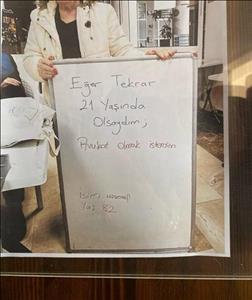 Eğer Tekrar
21 Yaşında
Olsaydım;
Avukat olarak isterdim
İsim:
Yaş: 82